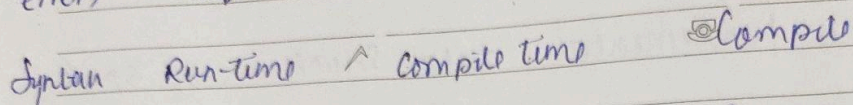 Syntax Run-time ^ Compile time Compile